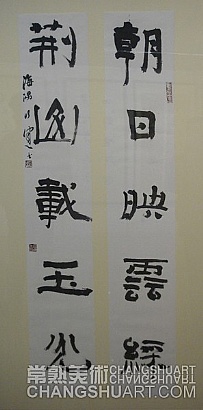 朝日映雲綵
荆山載玉光
常熟美術
CHANGSHUART
CHANGSHUART.COM